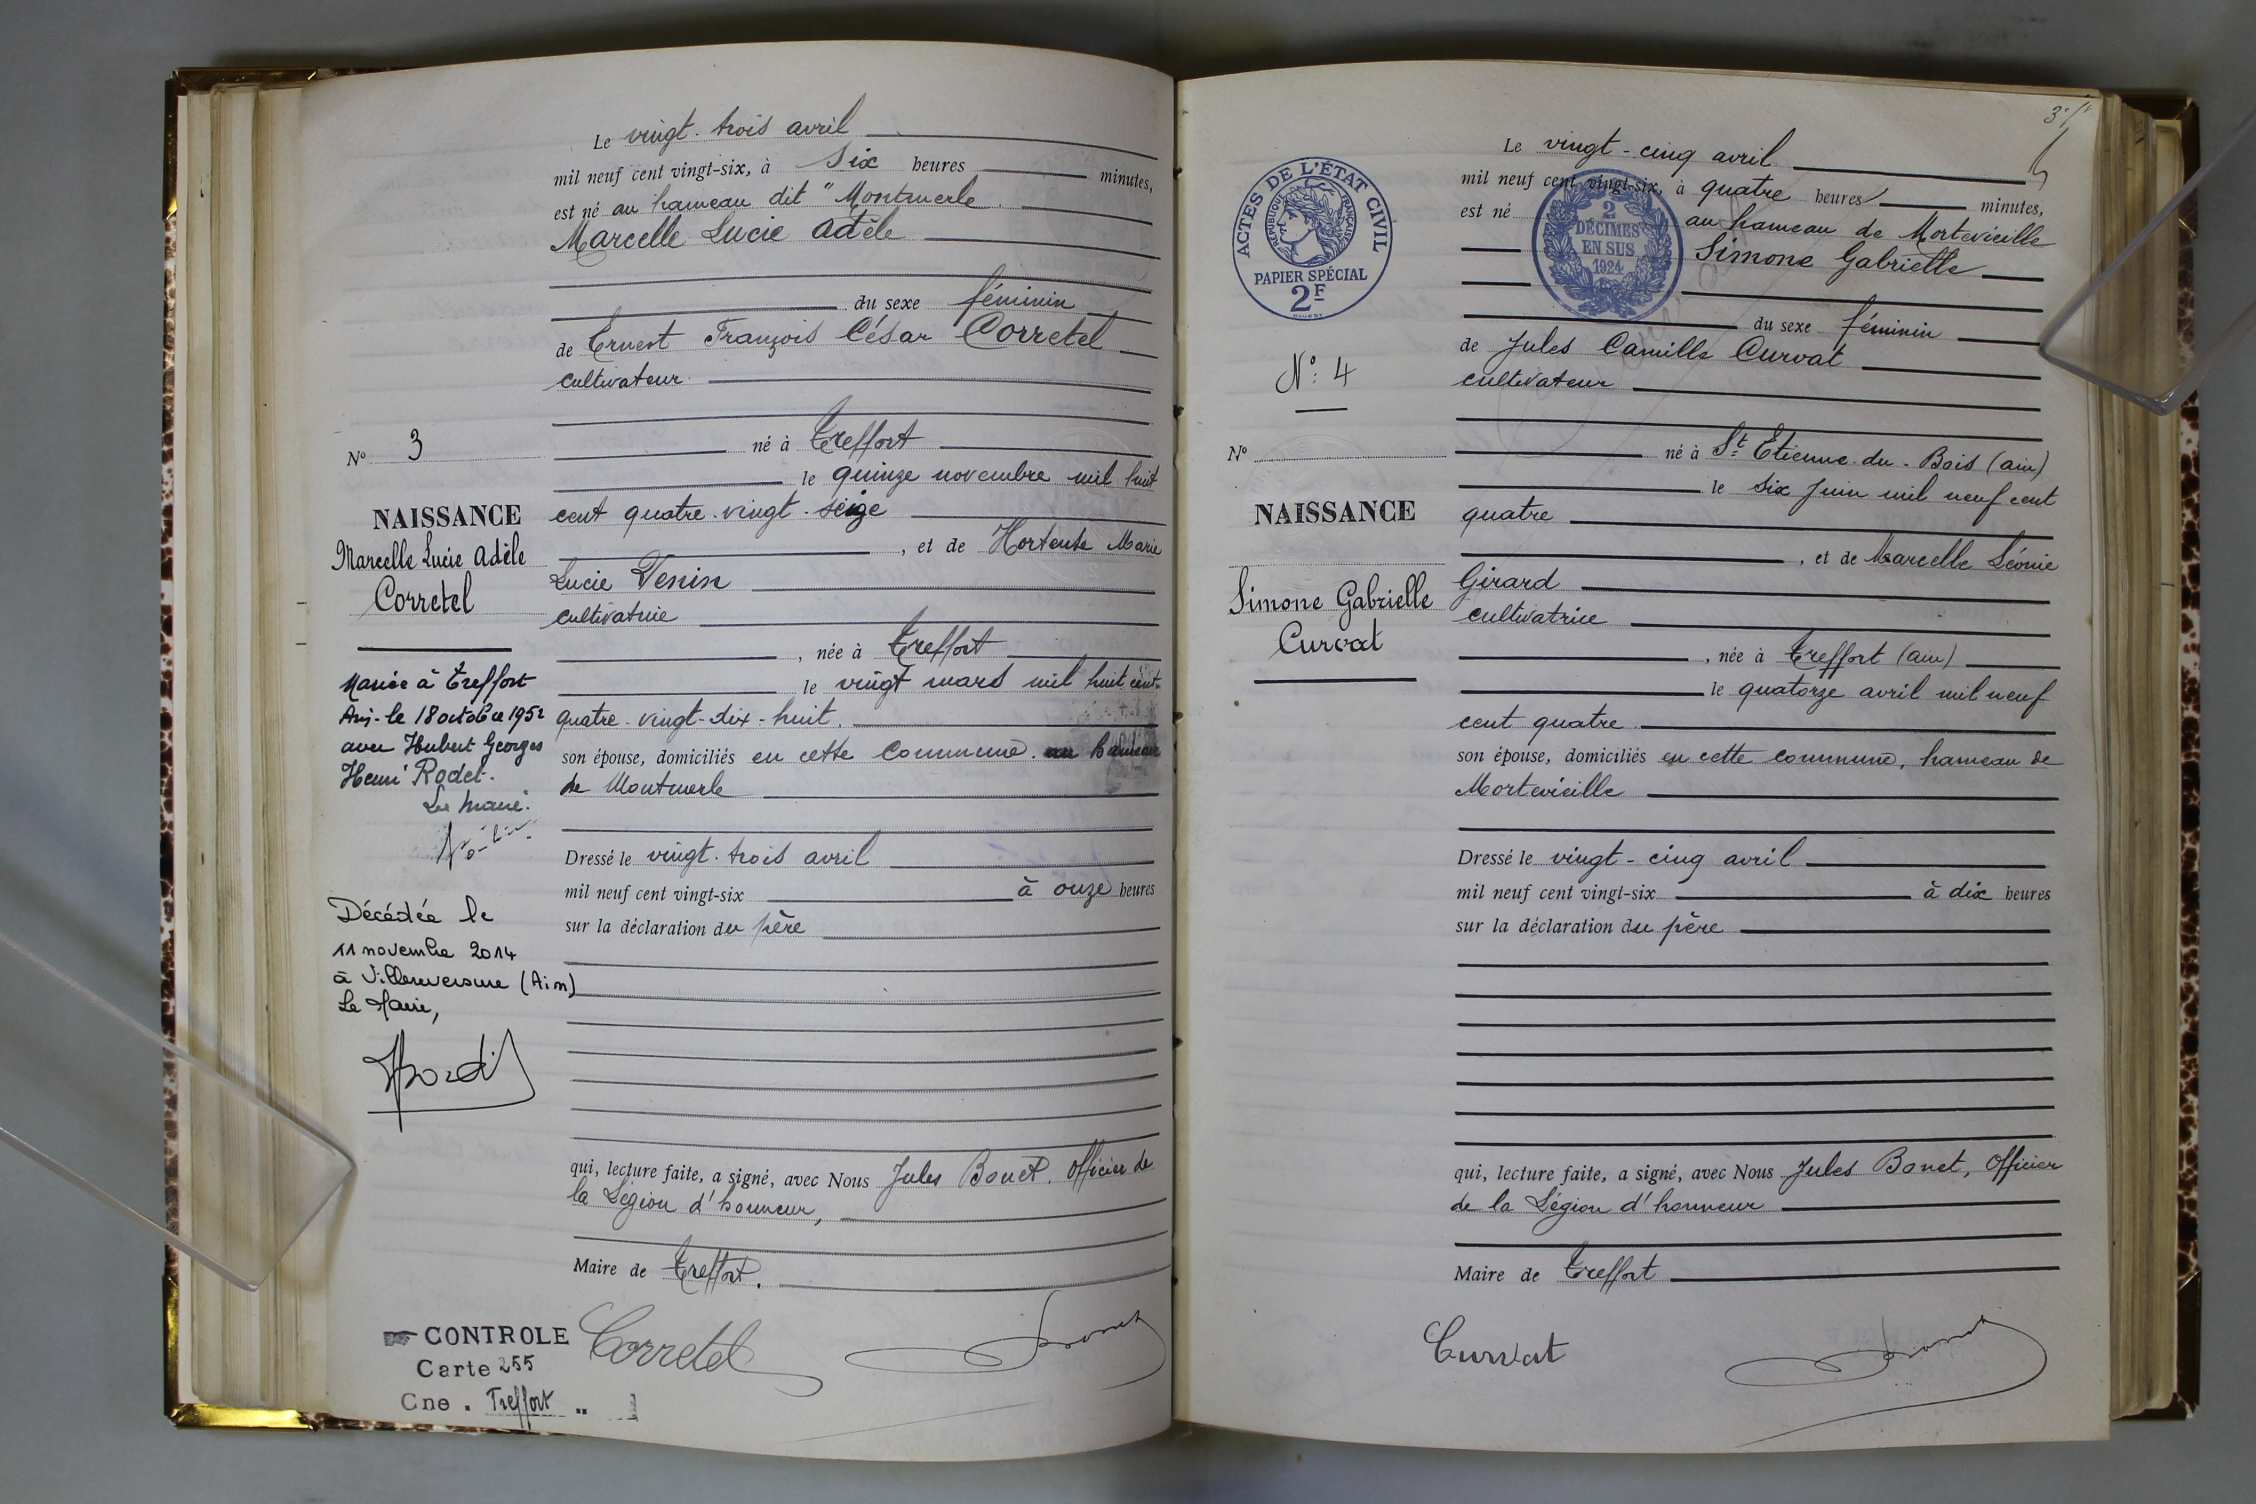 Le vingt-trois avril
mil neuf cent vingt-six, à Six heures minutes,
est né au hameau dit "Montmerle
Marcelle Lucie Adèle
du sexe féminin
de Ernest François César Corretel
cultivateur
né à Treffort
le quinze novembre mil huit
cent quatre-vingt-seize
, et de Hortense Marie
Lucie Venin
cultivatrice
, née à Treffort
le vingt mars mil huit cent-
quatre-vingt-dix-huit.
son épouse, domiciliés en cette commune. au hameau
de Montmerle
Dressé le vingt-trois avril
mil neuf cent vingt-six à onze heures
sur la déclaration du père
qui, lecture faite, a signé, avec Nous Jules Bonet. Officier de
la Légion d'honneur,
Maire de Treffort.
Corretel
Nº 3
NAISSANCE
Marcelle Lucie Adèle
Corretel
Mariée à Treffort
Ain- le 18 octobre 1952
avec Hubert Georges
Henri Rodet.
Le Maire.
Décédée le
11 novembre 2014
à Villereversure (Ain)
Le Maire,
CONTROLE
Carte 255
Cne. Treffort "
ACTES DE L'ÉTAT CIVIL
RÉPUBLIQUE FRANÇAISE
PAPIER SPÉCIAL
2F
Nº: 4
Nº
NAISSANCE
Simone Gabrielle
Curvat
2
DÉCIMES
EN SUS
1924
Le vingt-cinq avril
mil neuf cent vingt-six, à quatre heures minutes,
est né au hameau de Mortevieille
Simone Gabrielle
du sexe féminin
de Jules Camille Curvat
cultivateur
né à St Etienne-du-Bois (ain)
le six Juin mil neuf cent
quatre
, et de Marcelle Léonie
Girard
cultivatrice
, née à Treffort (ain)
le quatorze avril mil neuf
cent quatre
son épouse, domiciliés en cette commune, hameau de
Mortevieille
Dressé le vingt-cinq avril
mil neuf cent vingt-six à dix heures
sur la déclaration du père
qui, lecture faite, a signé, avec Nous Jules Bonet, Officier
de la Légion d'honneur
Maire de Treffort
Curvat